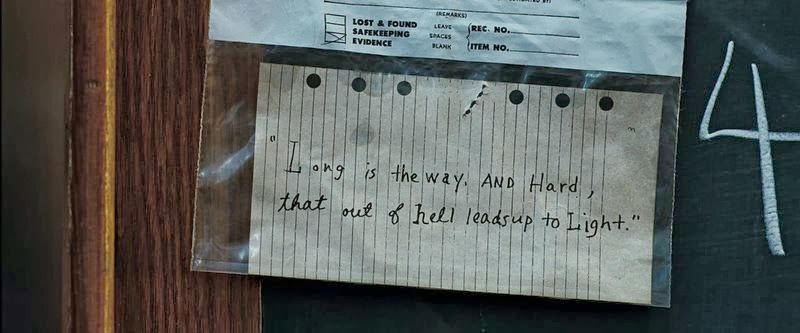 (REMARKS)
LOST & FOUND
SAFEKEEPING
EVIDENCE
LEAVE
SPACES
BLANK
REC. NO.
ITEM NO.
4
"Long is the way. AND Hard,
that out of hell leads up to Light."